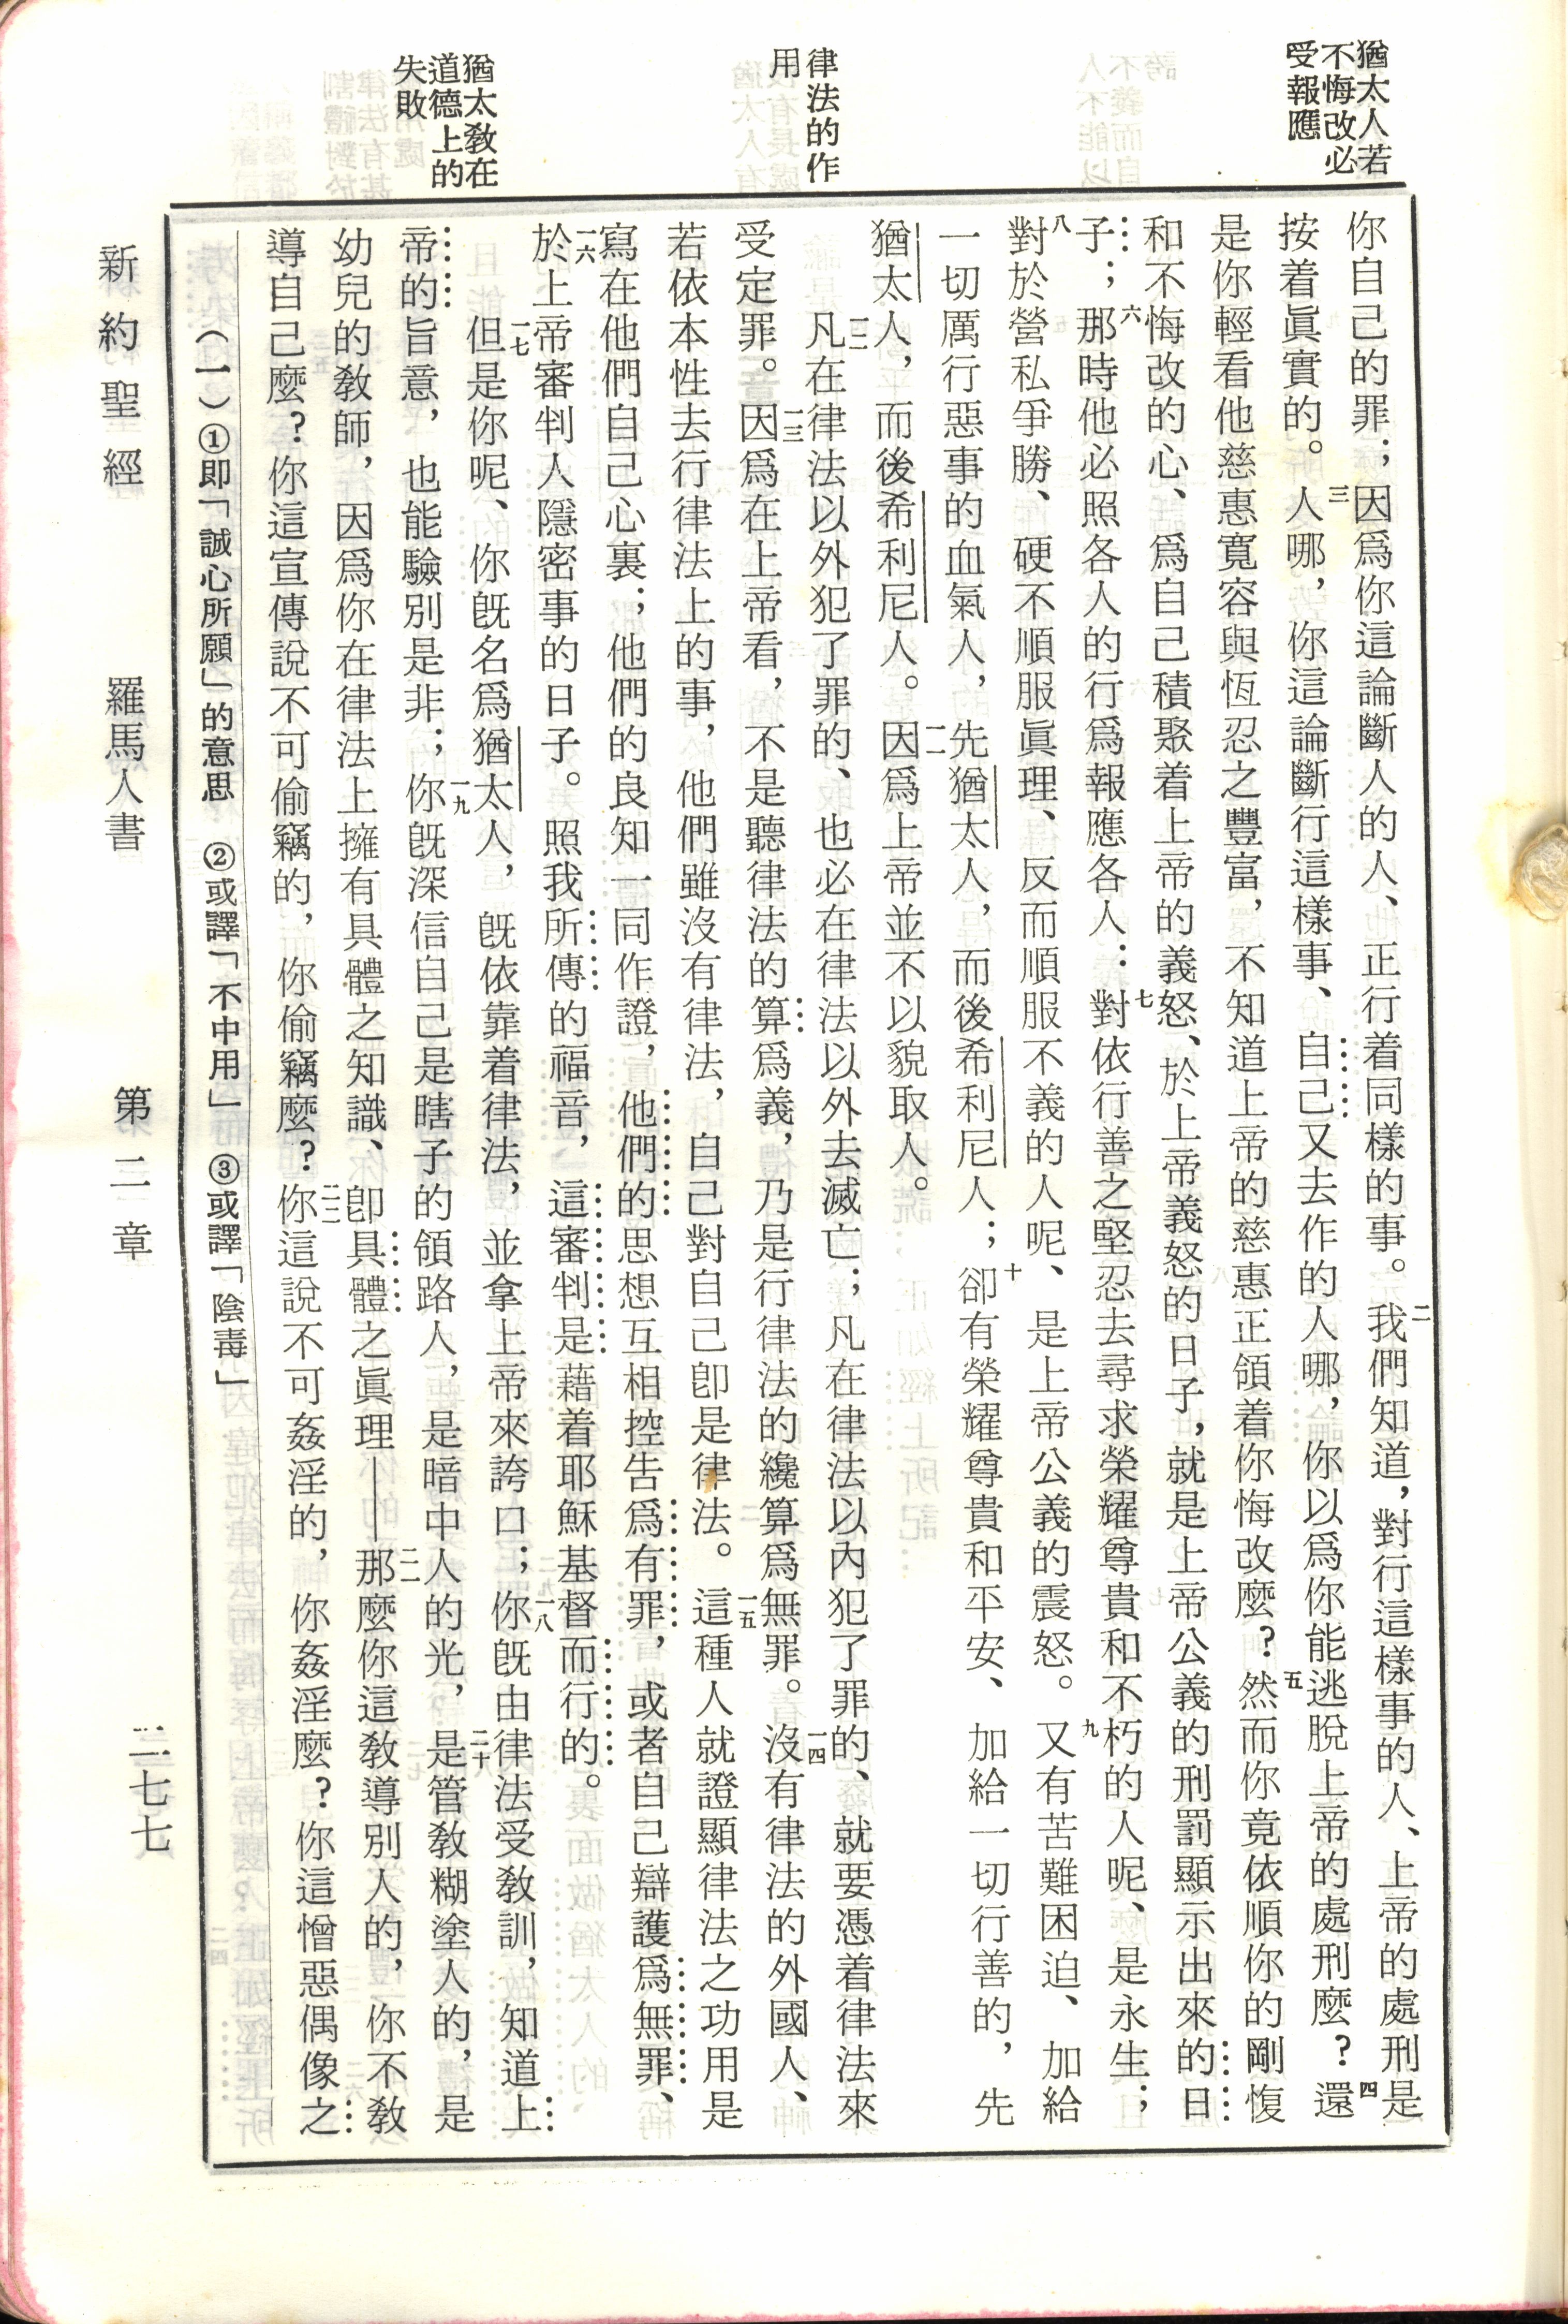 猶太人若
不悔改必
受報應
律法的作
用
猶太教在
道德上的
失敗
你自己的罪；因爲你這論斷人的人、正行着同樣的事。二我們知道，對行這樣事的人、上帝的處刑是
按着眞實的。三人哪，你這論斷行這樣事、自己又去作的人哪，你以爲你能逃脫上帝的處刑麼？四還
是你輕看他慈惠寬容與恆忍之豐富，不知道上帝的慈惠正領着你悔改麼？五然而你竟依順你的剛愎
和不悔改的心、爲自己積聚着上帝的義怒、於上帝義怒的日子，就是上帝公義的刑罰顯示出來的日
子；六那時他必照各人的行爲報應各人：七對依行善之堅忍去尋求榮耀尊貴和不朽的人呢、是永生；
八對於營私爭勝、硬不順服眞理、反而順服不義的人呢、是上帝公義的震怒。九又有苦難困迫、加給
一切厲行惡事的血氣人，先猶太人，而後希利尼人；十卻有榮耀尊貴和平安、加給一切行善的，先
猶太人，而後希利尼人。一一因爲上帝並不以貌取人。
一二凡在律法以外犯了罪的、也必在律法以外去滅亡；凡在律法以內犯了罪的、就要憑着律法來
受定罪。一三因爲在上帝看，不是聽律法的算爲義，乃是行律法的纔算爲無罪。一四沒有律法的外國人、
若依本性去行律法上的事，他們雖沒有律法，自己對自己卽是律法。一五這種人就證顯律法之功用是
寫在他們自己心裏；他們的良知一同作證，他們的思想互相控告爲有罪，或者自己辯護爲無罪、
一六於上帝審判人隱密事的日子。照我所傳的福音，這審判是藉着耶穌基督而行的。
一七但是你呢、你旣名爲猶太人，旣依靠着律法，並拿上帝來誇口；一八你旣由律法受敎訓，知道上
帝的旨意，也能驗別是非；一九你旣深信自己是瞎子的領路人，是暗中人的光，二十是管敎糊塗人的，是
幼兒的敎師，因爲你在律法上擁有具體之知識、卽具體之眞理——二一那麼你這敎導別人的，你不敎
導自己麼？你這宣傳說不可偷竊的，你偷竊麼？二二你這說不可姦淫的，你姦淫麼？你這憎惡偶像之
（一）①即「誠心所願」的意思　②或譯「不中用」　③或譯「陰毒」
新約聖經　羅馬人書　第二章　二七七